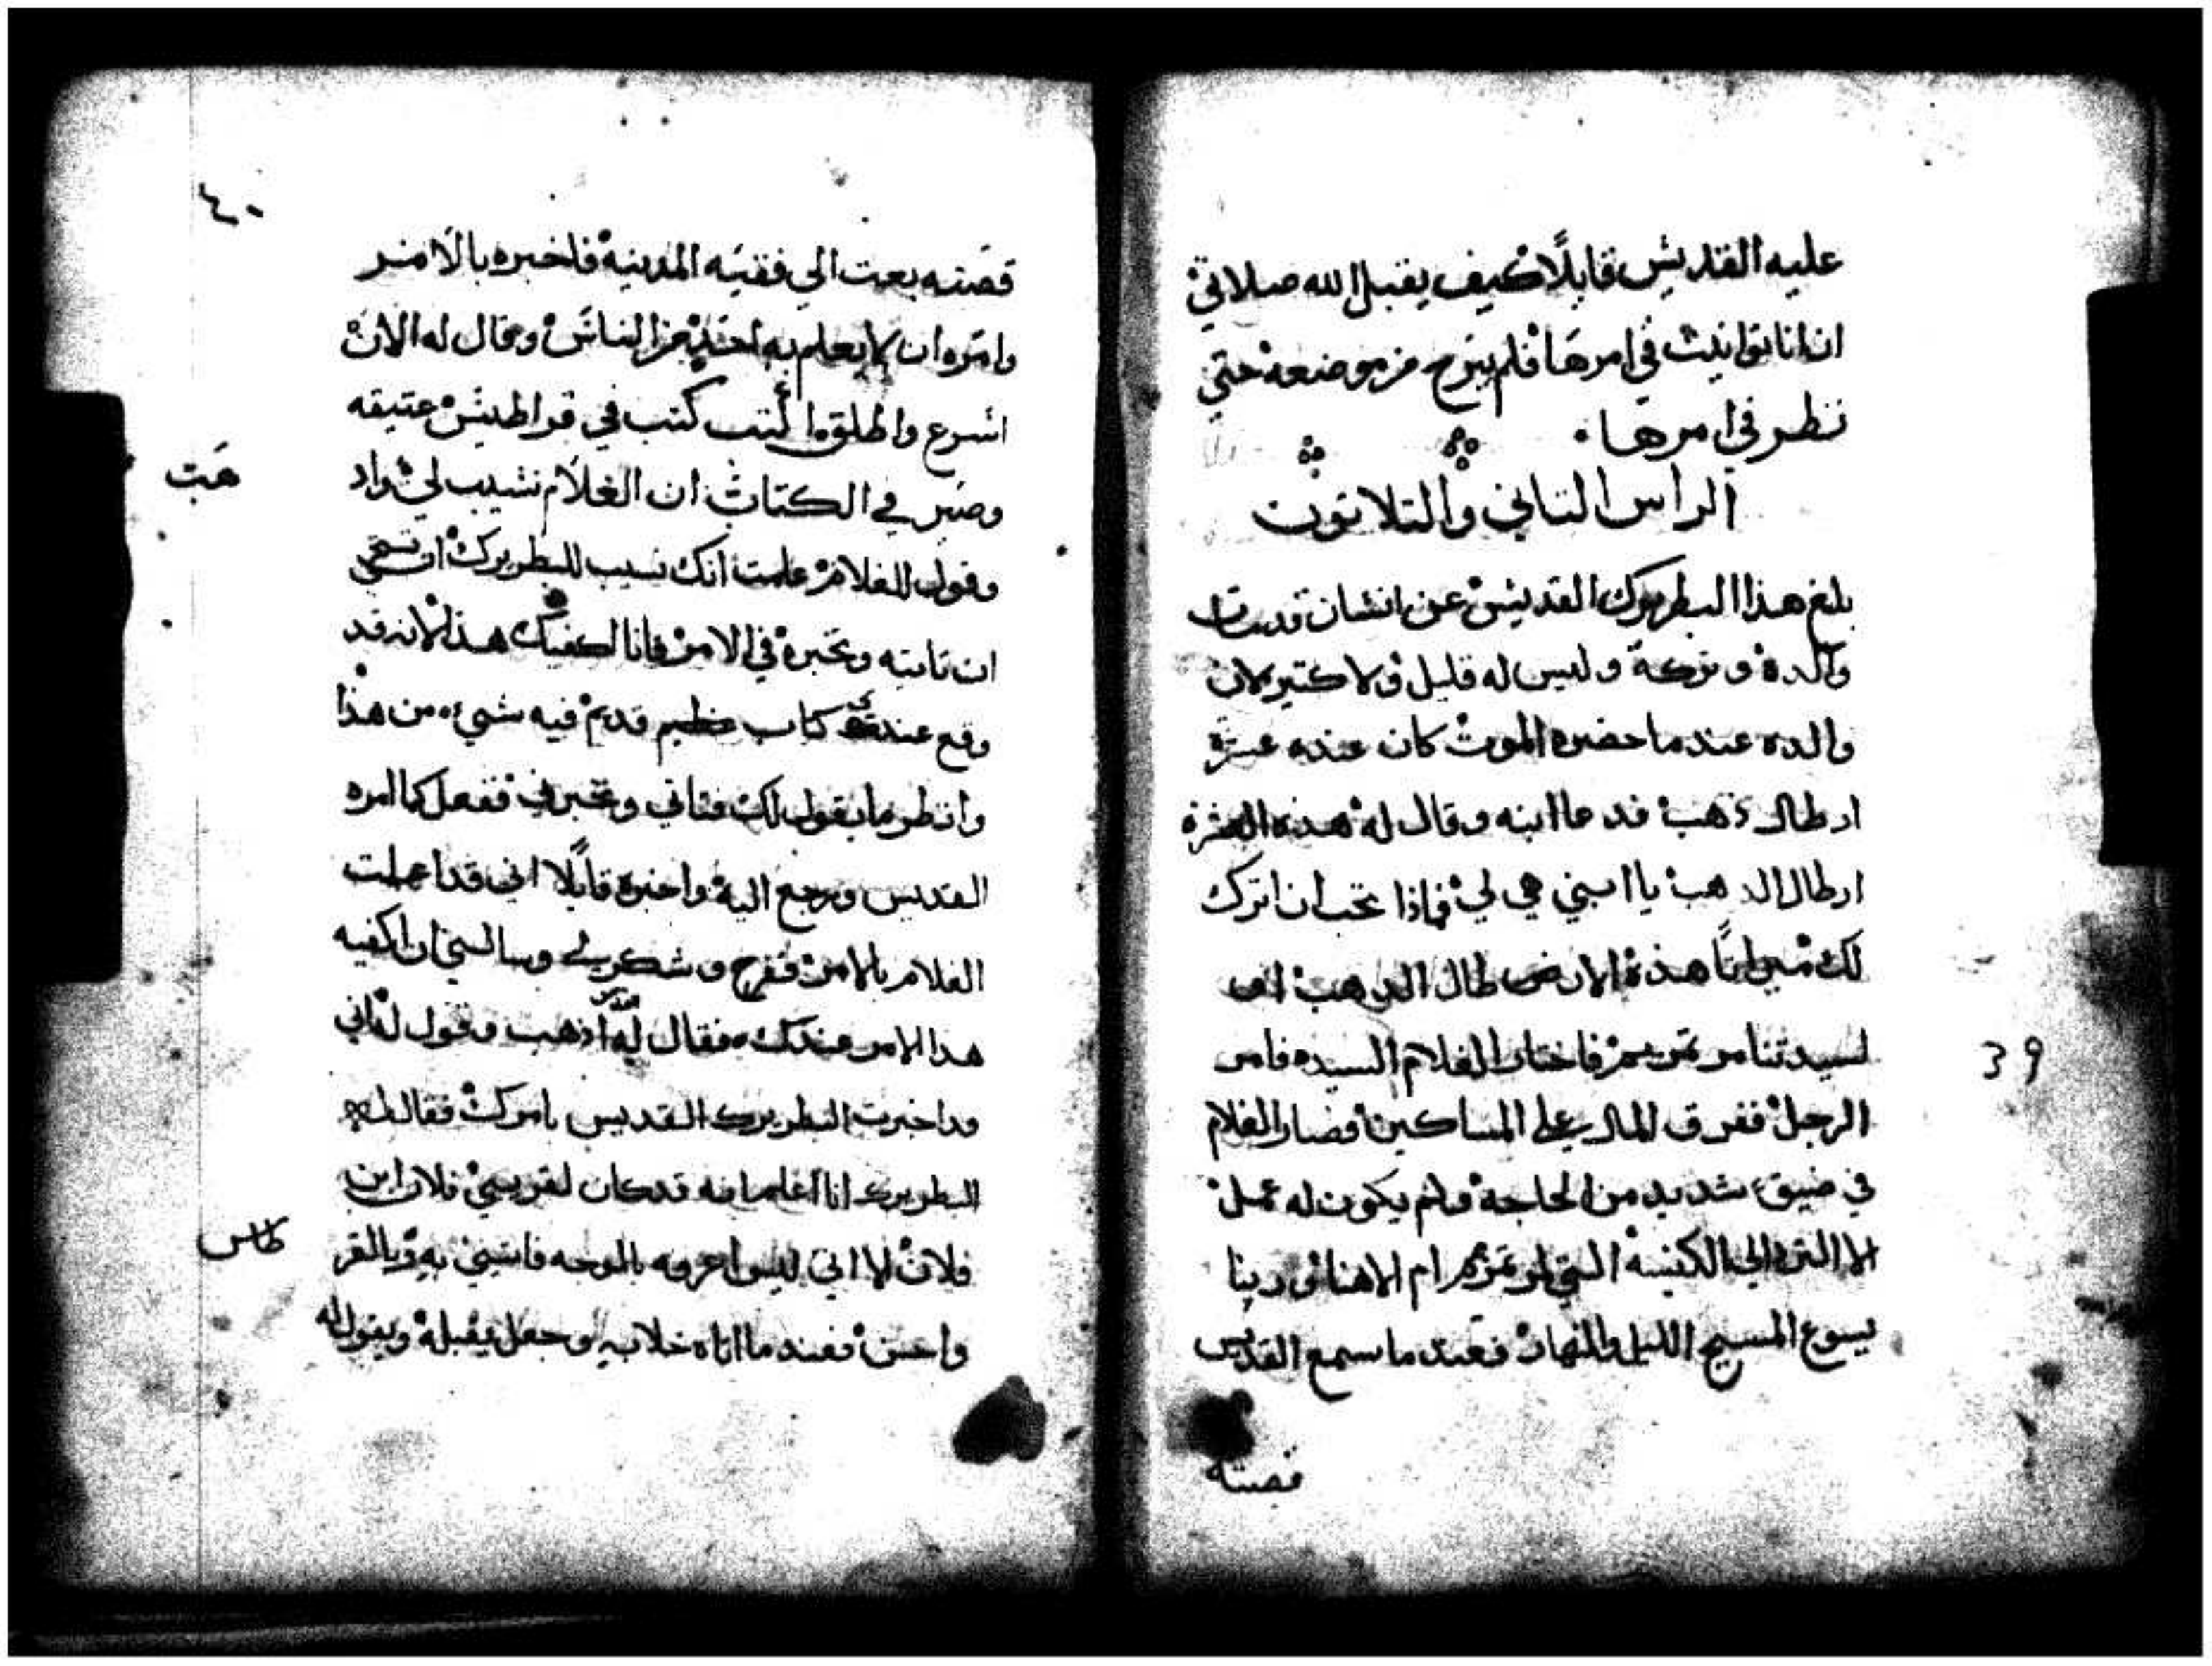 عليه القديس قايلًا كيف يقبل الله صلاتي
ان انا توانيت في امرها فلم يبرح من موضعه حتي
نظر في امرها
الراس التاني والتلاتون
بلغ هذا البطريرك القديس عن انسان قد مات
والده وتركه وليس له قليل ولا كتير لان
والده عندما حضره الموت كان عنده عشرة
ارطال ذهب فدعا ابنه وقال له هذه العشرة
ارطال الذهب يا ابني هي لي فماذا تحب ان اترك
لك ميراثًا هذه الارطال الذهب ام
لسيدتنا مرتمريم فاختار الغلام السيده فامر
الرجل ففرق المال علي المساكين فصار الغلام
في ضيق شديد من الحاجة ولم يكون له عمل
الا التردد الي الكنيسة التي لمرتمريم ام الاهنا وربنا
يسوع المسيح الليل والنهار فعندما سمع القديس
قصته
39
٤٠
قصته بعت الي فقيه المدينة فاخبره بالامر
وامره ان لا يعلم به احد من الناس وقال له الان
اسرع وانطلق اكتب كتب في قراطيس عتيقه
وصير في الكتاب ان الغلام نسيب لي واد
هب
وقول للغلام علمت انك نسيب للبطريرك
ان تاتيه وتخبره في الامر فانا اكفيك هذا لانه قد
وقع عندي كتاب عظيم قديم فيه شيء من هذا
وانظر ما يقول لك فتاتي وتخبرني ففعل كما امره
القديس ورجع اليه واخبره قايلًا اني قد اعملت
الغلام بالامر ففرح وشكر لي وسالني ان اكفيه
هذا الامر عندك فقال له اذهب وقول له اني
قد اخبرت البطريرك القديس بامرك فقال له
البطريرك انا اعلم انه قد كان لقريبي فلان ابن
فلان الا اني ليس اعرفه بالوجه فاتيني به وبالقر
طاس
واحسن فعندما اتاه خلا به وجعل يقبله ويقول له